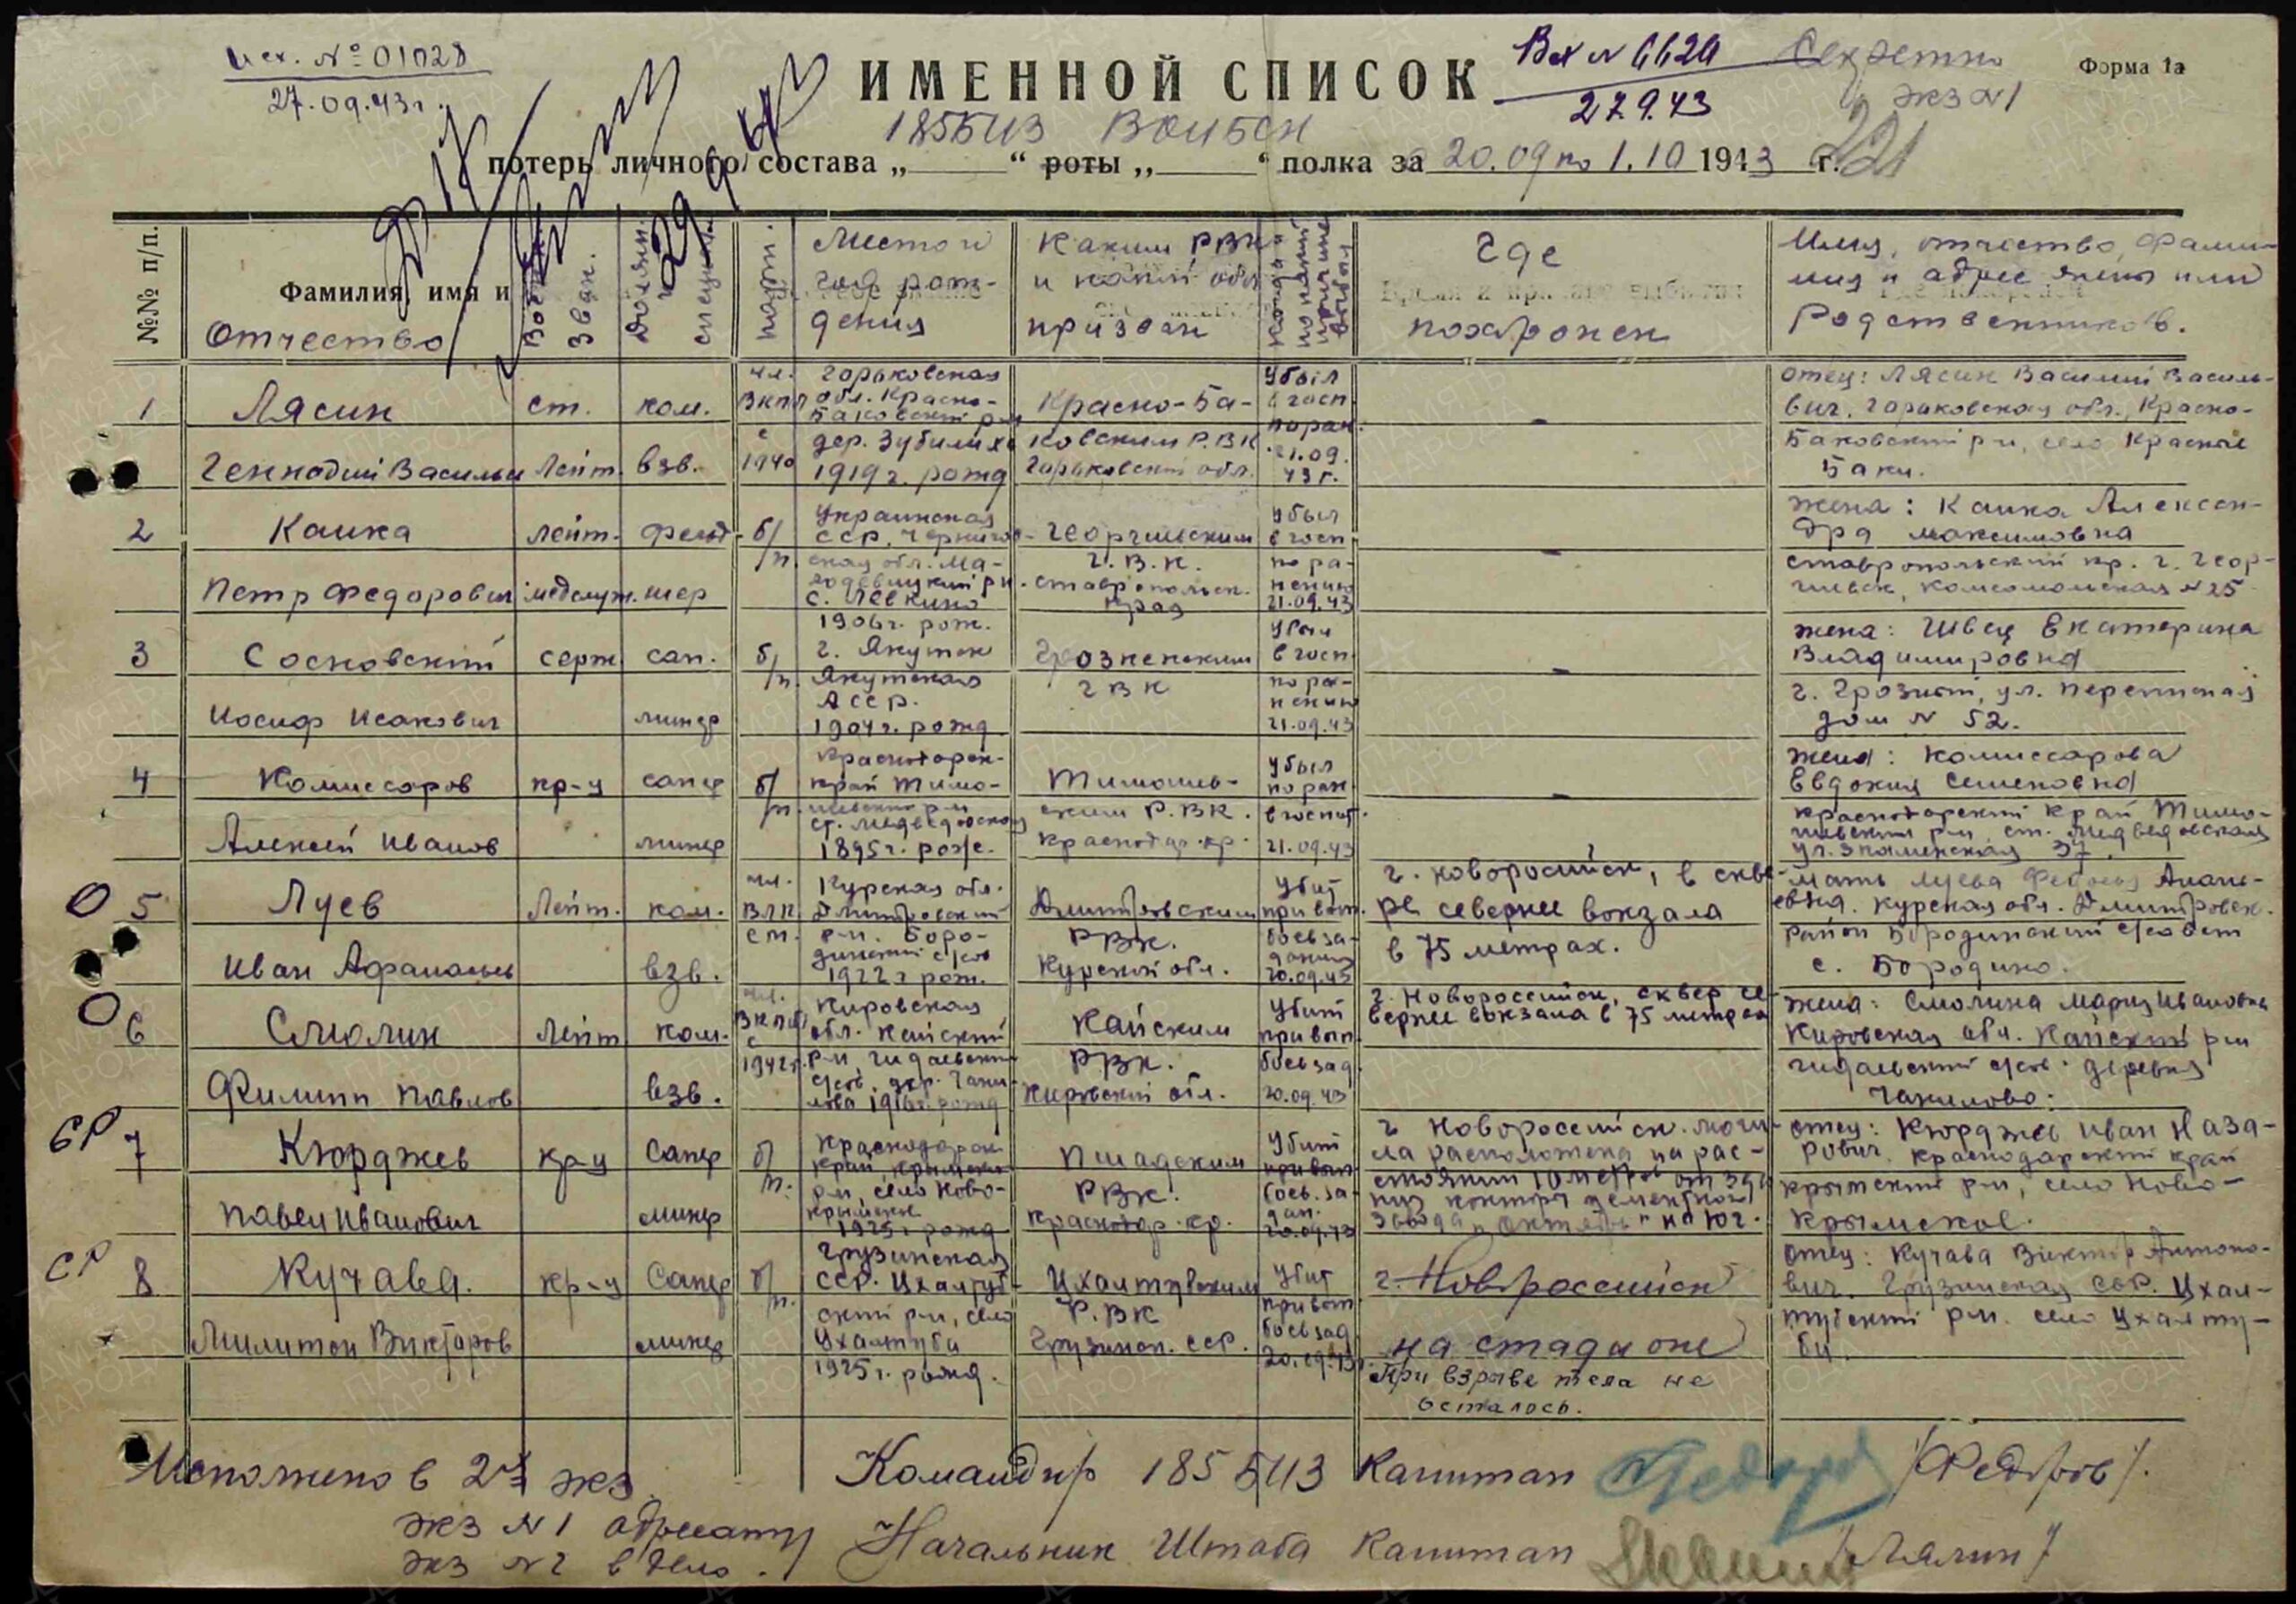 Исх. № 01028
27.09.43 г.
ИМЕННОЙ СПИСОК
Вх N 6620
27.9.43
Секретно
экз N 1
Форма 1а
185 БИЗ
потерь личного состава „ “ роты „ “ полка за 20.09 по 1.10 1943 г.
221
29
№№ п/п.
Фамилия, имя и
Отчество
Воен.
Зван.
Должн.
и
специальн.
парт.
Место и
год рож-
дения
Каким РВК
и какой обл
призван
Когда и
по какой
причине
выбыл
Где
похоронен
Имя, отчество, фами-
лия и адрес жены или
родственников.
1
Лясин
Геннадий Васильи
ст.
лейт.
ком.
взв.
чл.
ВКПб
с
1940
Горьковская
обл. Красно-
Баковский р-н
дер. Зубилиха
1919 г. рожд
Красно-Ба-
ковским Р.В.К
Горьковской обл.
Убыл
в госп
по ран.
21.09.
43 г.
-
отец: Лясин Василий Василь-
вич, Горьковская обл., Красно-
Баковский р-н, село Красные
Баки.
2
Кашка
Петр Федорович
лейт.
медслуж.
фельд-
шер
б/
п.
Украинская
ССР, Чернигов-
ская обл. Ма-
р-н.
1906 г. рож.
Георгиевским
Г.В.К.
Ставропольск.
край
Убыл
в госп
по ра-
нению
21.09.43
-
жена: Кашка Алексан-
дра Максимовна
Ставропольский кр. г. Геор-
гиевск, Комсомольская N 25
3
Сосновский
Иосиф Исакович
серж
сап.
минер
б/
п.
г. Якутск
Якутская
АССР.
1904 г. рожд
Грозненским
ГВК
Убыл
в госп
по ра-
нению
21.09.43
-
жена: Швец Екатерина
Владимировна
г. Грозный, ул.
дом N 52.
4
Комиссаров
Алексей Иванов
кр-ц
сапер
минер
б/
п.
Краснодарск-
край Тимо-
шевский р-н
ст. Медведовская
1895 г. рожд.
Тимашев-
ским Р.В.К.
Краснодар. кр.
Убыл
по ран.
в госпит.
21.09.43
-
жена: Комиссарова
Евдокия Семеновна
Краснодарский край Тимо-
шевский р-н, ст. Медведовская
ул. Знаменская 37.
5
Луев
Иван Афанасьев
Лейт.
ком.
взв.
чл.
ВЛК
СМ.
Курская обл.
Дмитровский
р-н. Боро-
динский с/сов
1922 г рож.
Дмитровским
РВК.
Курской обл.
Убит
при вып.
боев за-
дания
20.09.43
г. Новоросийск, в скве-
ре севернее вокзала
в 75 метрах.
мать Луева Анань-
евна. Курская обл. Дмитровск.
район Бородинский с/совет
с. Бородино.
6
Смолин
Филипп Павлов
Лейт
ком.
взв.
чл.
ВКПб
с
1942 г.
Кировская
обл. Кайский
р-н, Гидаевский
с/сов, дер. Чани-
лова 1916 г. рожд
Кайским
РВК.
Кировской обл.
Убит
при вып.
боев зад
20.09.43
г. Новороссийск, сквер се-
вернее вокзала в 75 метрах
жена: Смолина Мария Ивановна
Кировская обл. Кайский р-н
Гидаевский с/сов. деревня
Чанилово.
СР
7
Кюрджев
Павел Иванович
кр-ц
Сапер
минер
б/
п.
Краснодарск
край, Крымский
р-н, село Ново-
крымское
1925 г рожд
Пшадским
РВК.
Краснодар. кр.
Убит
при вып
боев. за-
дан.
20.09.43
г Новороссийск. моги-
ла расположена на рас-
стоянии 10 метров от зда-
ния конторы цементного
завода "Октябрь" на юг.
отец: Кюрджев Иван Наза-
рович. Краснодарский край
Крымский р-н, село Ново-
крымское.
СР
8
Кучава.
Милитон Викторов
кр-ц
Сапер
минер
б/
п.
Грузинская
ССР. Цхалтуб-
ский р-н, село
Цхалтуби
1925 г. рожд.
Цхалтубским
Р.ВК
Грузинск. ССР.
Убит
при вып
боев зад
20.09.43 г.
г. Новороссийск
на стадионе
При взрыве тела не
осталось.
отец: Кучава Виктор Антоно-
вич. Грузинская ССР. Цхал-
тубский р-н. село Цхалту-
би.
Исполнено в 2х экз.
экз N 1 адресату
экз N 2 в дело.
Командир 185 БИЗ Капитан /Федоров/.
Начальник Штаба Капитан /Лялин/